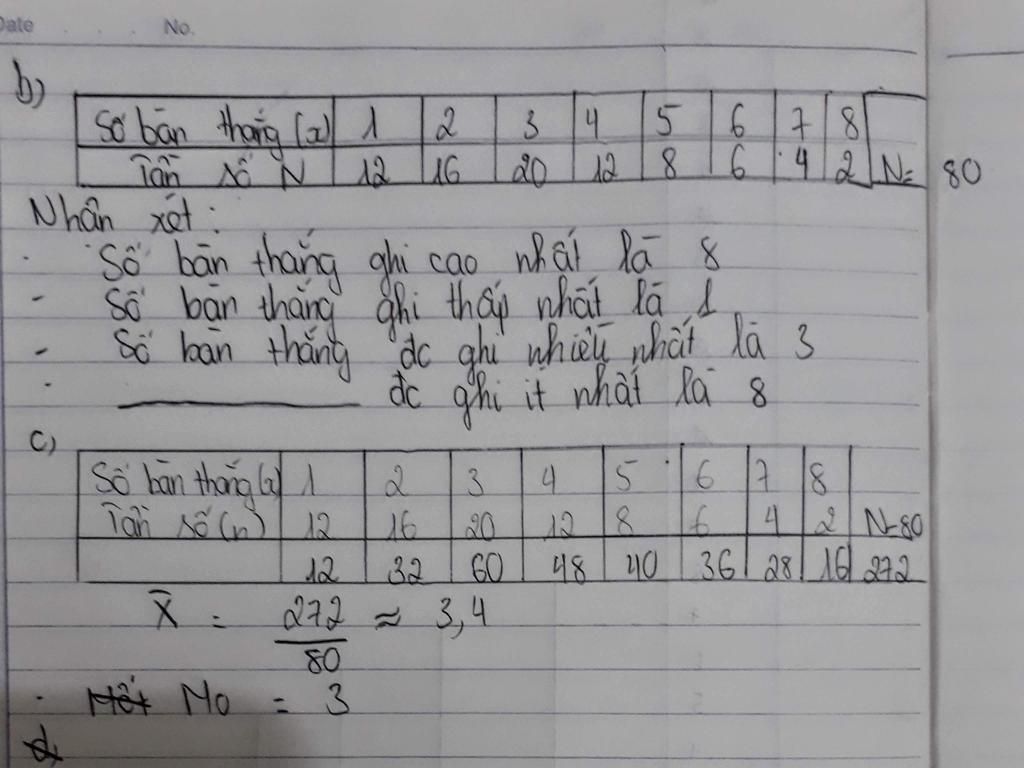 Date No.
b)
Số bàn thắng (x) 1 2 3 4 5 6 7 8
Tần số N 12 16 20 12 8 6 4 2 N= 80
Nhận xét:
- Số bàn thắng ghi cao nhất là 8
- Số bàn thắng ghi thấp nhất là 1
- Số bàn thắng đc ghi nhiều nhất là 3
- ________ đc ghi ít nhất là 8
c)
Số bàn thắng (x) 1 2 3 4 5 6 7 8
Tần số (n) 12 16 20 12 8 6 4 2 N=80
12 32 60 48 40 36 28 16 272
X̄ = 272/80 ≈ 3,4
- Mo = 3